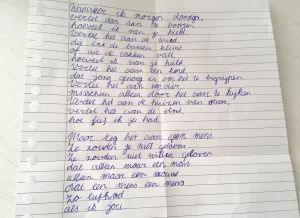 Wanneer ik morgen doodga,
vertel dan aan de bomen
hoeveel ik van je hield.
Vertel het aan de wind,
die in de bomen klimt
of uit de takken valt,
hoeveel ik van je hield.
Vertel het aan een kind
dat jong genoeg is om het te begrijpen.
Vertel het aan een dier,
misschien alleen door het aan te kijken.
Vertel het aan de huizen van steen,
vertel het aan de stad,
hoe lief ik je had.

Maar zeg het aan geen mens
Ze zouden je niet geloven.
Ze zouden niet willen geloven
dat alleen maar een man
alleen maar een vrouw
dat een mens een mens
zo liefhad
als ik jou.